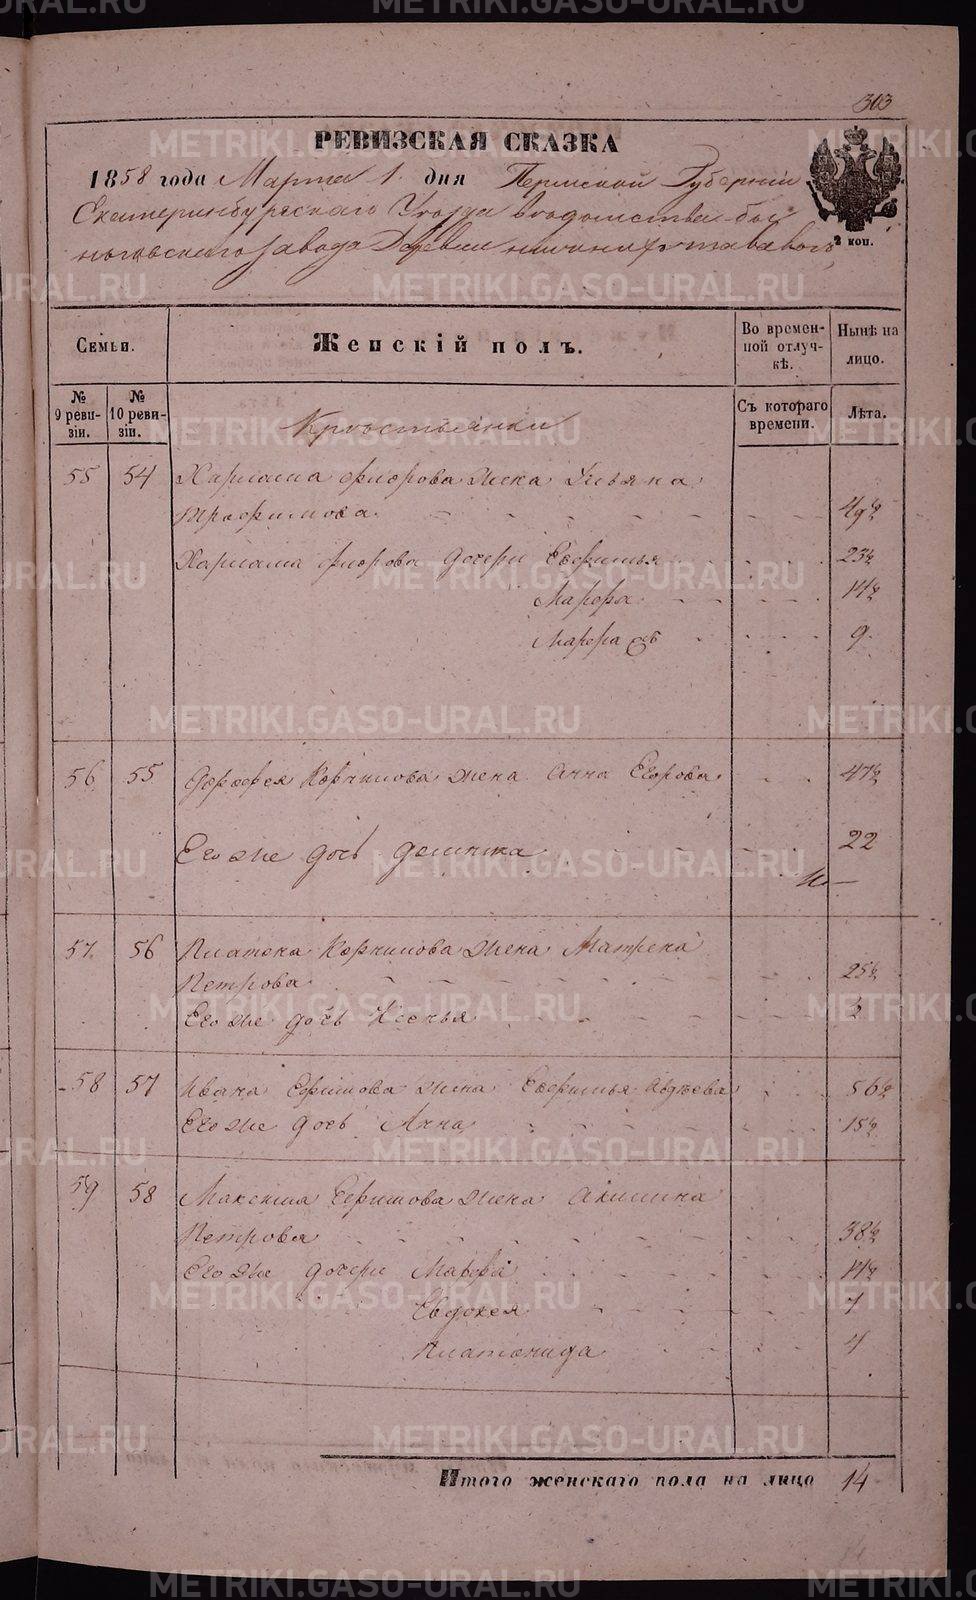 303
РЕВИЗСКАЯ СКАЗКА
1858 года Марта 1 дня Пермской Губернии
Екатеринбургскаго Уезда ведомства Бы
нговскаго завода Деревни
2 коп.
Семьи.
Женскій полъ.
Во времен-
ной отлуч-
кѣ.
Нынѣ на
лицо.
№
9 реви-
зіи.
№
10 реви-
зіи.
Съ котораго
времени.
Лѣта.
Крестьянки
55 54 Харлама Фирова жена Ульяна
Трофимова 49½
Харлама Фирова дочери Евфимья 23½
Марфа 14½
Марфа 9
56 55 Дорофея Корнилова жена Анна Егорова 47½
Его же дочь 22
57 56 Платона Корнилова жена Матрена
Петрова 25½
Его же дочь Ксенья ½
58 57 Ивана Ефимова жена Евфимья Авдѣева 56½
Его же дочь Анна 15½
59 58 Максима Ефимова жена Акилина
Петрова 38½
Его же дочери Марфа 14½
Евдокея 7
Платонида 4
Итого женскаго пола на лицо 14
METRIKI.GASO-URAL.RU